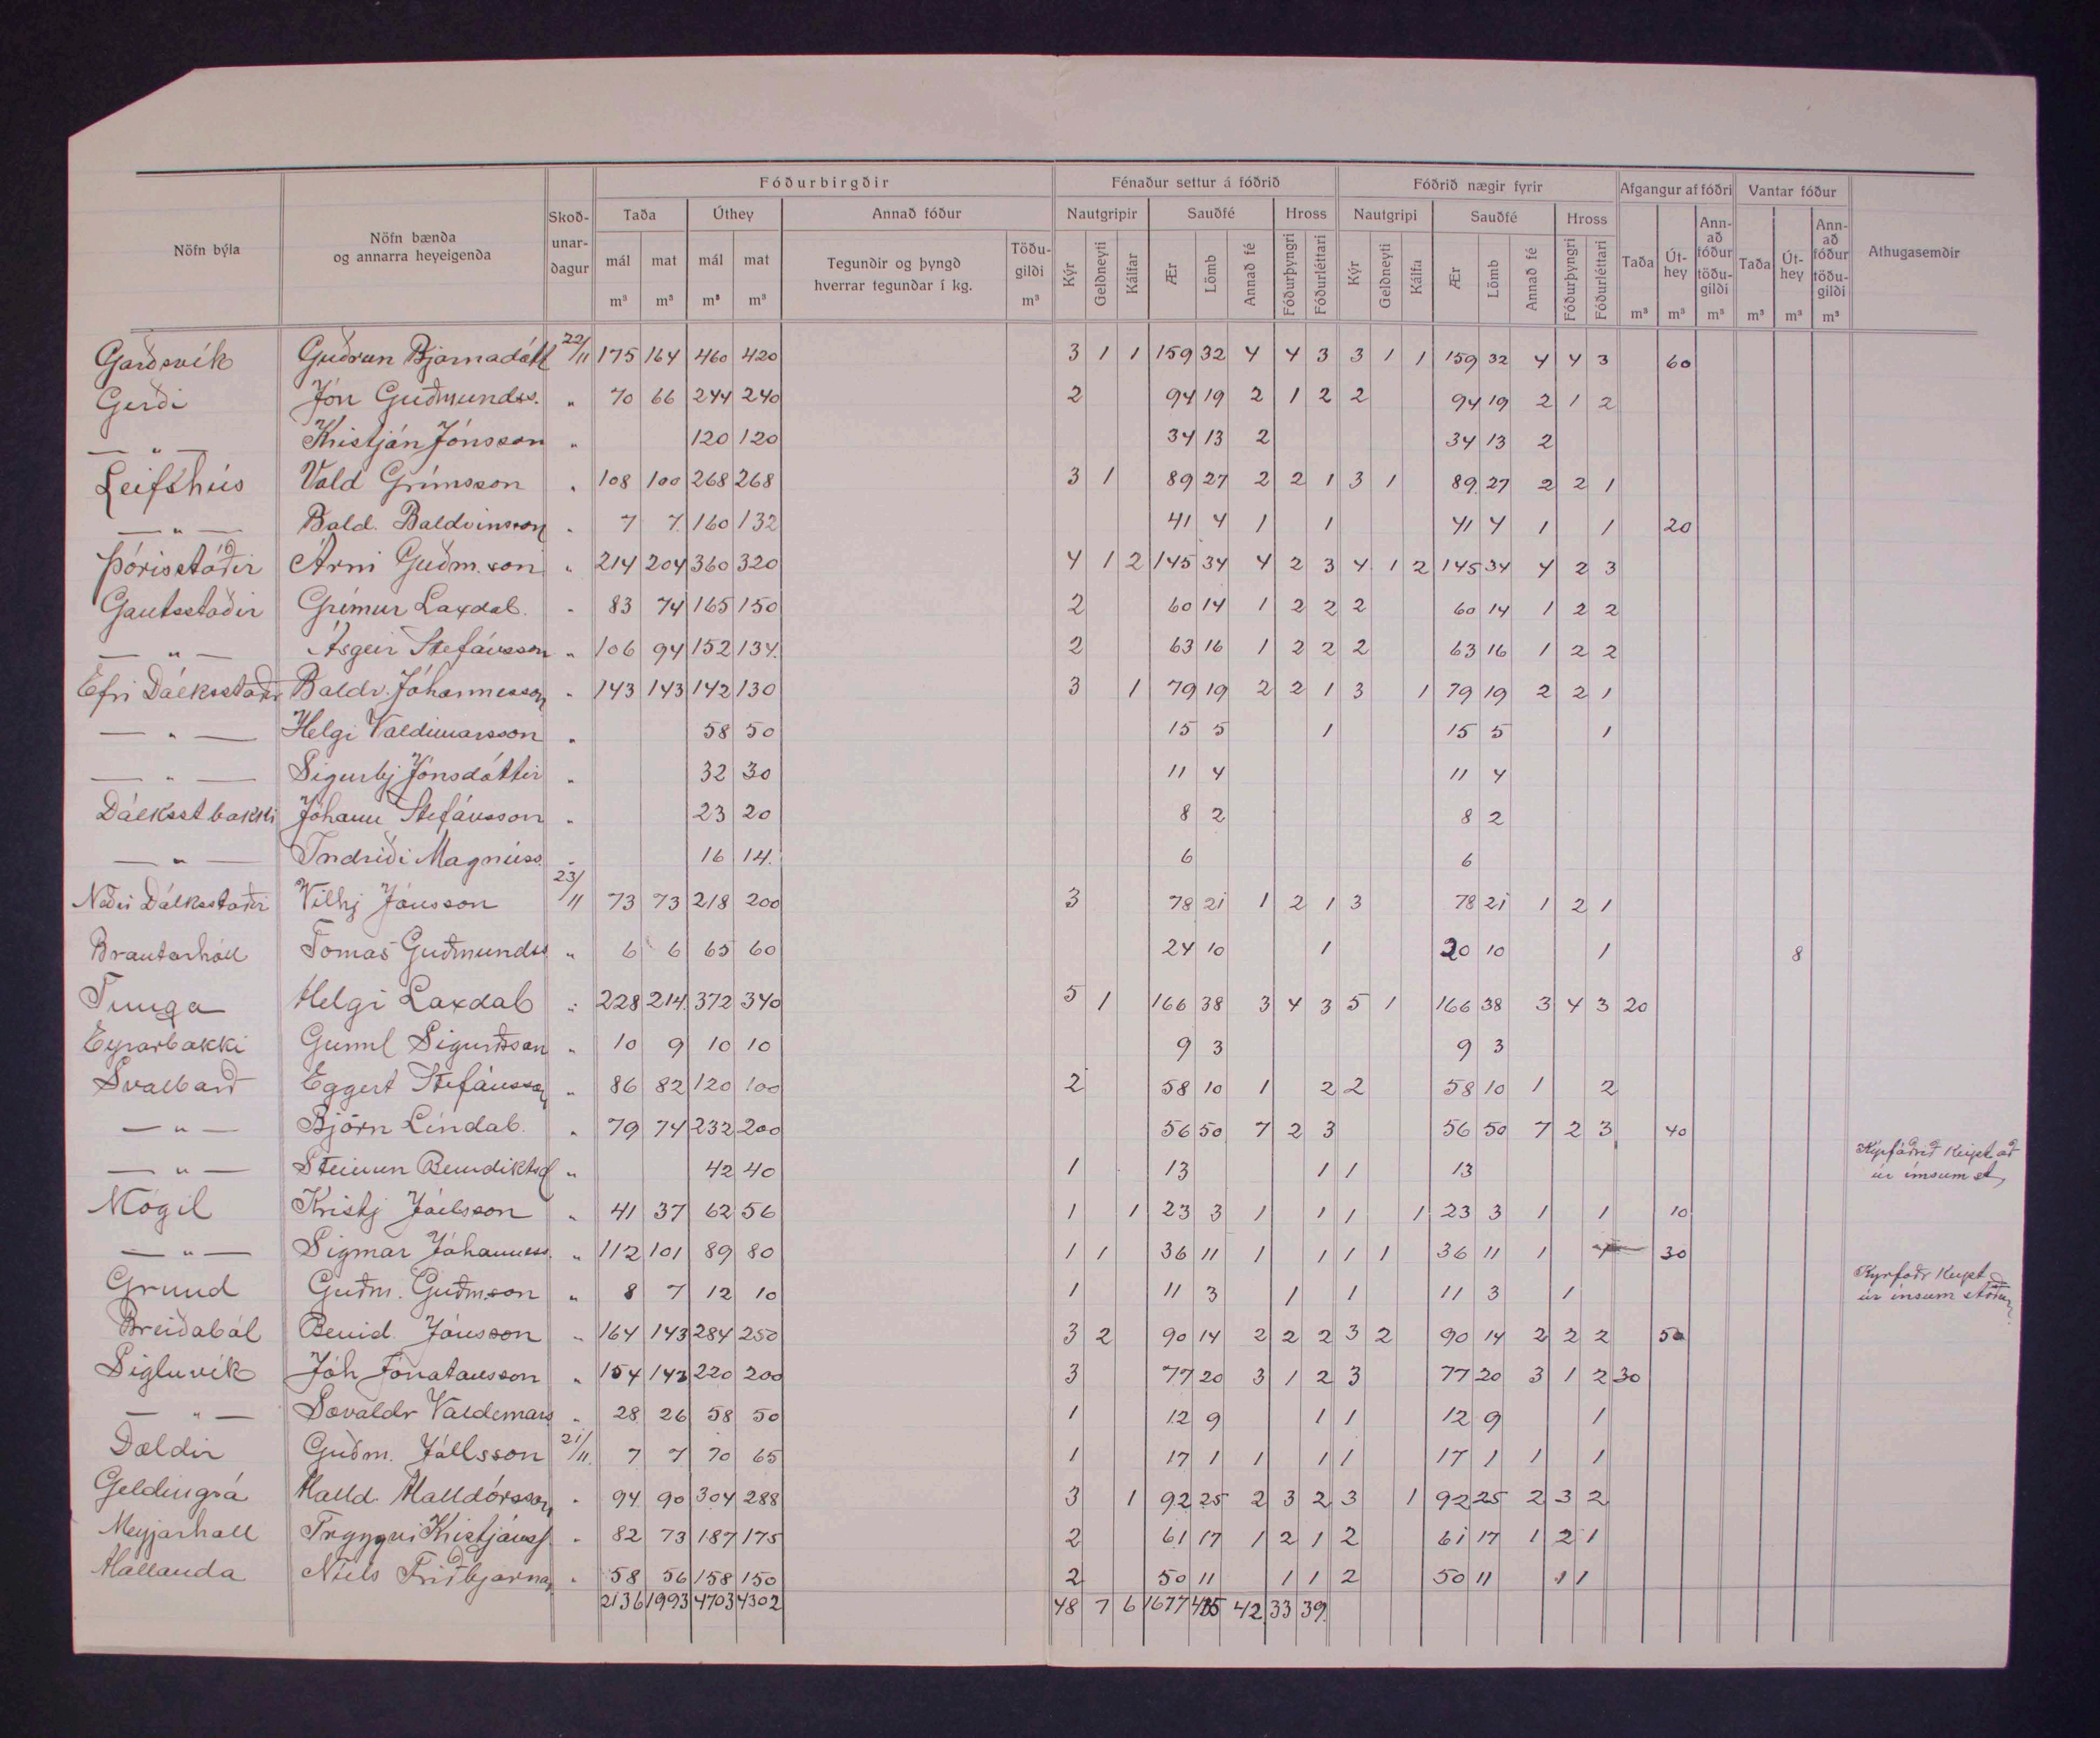 Fóðurbirgðir Fénaður settur á fóðrið Fóðrið nægir fyrir Afgangur af fóðri Vantar fóður
Nöfn býla Nöfn bænda og annarra heyeigenda Skoð-unar-dagur Taða Úthey Annað fóður Nautgripir Sauðfé Hross Nautgripi Sauðfé Hross Athugasemdir
mál m³ mat m³ mál m³ mat m³ Tegundir og þyngd hverrar tegundar í kg. Töðu-gildi m³ Kýr Geldneyti Kálfar Ær Lömb Annað fé Fóðurþyngri Fóðurléttari Kýr Geldneyti Kálfa Ær Lömb Annað fé Fóðurþyngri Fóðurléttari Taða m³ Út-hey m³ Ann-að fóður töðu-gildi m³ Taða m³ Út-hey m³ Ann-að fóður töðu-gildi m³
Garðsvík Guðrun Bjarnadótt 22/11 175 164 460 420 3 1 1 159 32 4 4 3 3 1 1 159 32 4 4 3 60
Gerði Jón Guðmundss. " 70 66 244 240 2 94 19 2 1 2 2 94 19 2 1 2
— " — Kristján Jónsson " 120 120 34 13 2 34 13 2
Leifshús Vald Grímsson " 108 100 268 268 3 1 89 27 2 2 1 3 1 89 27 2 2 1
— " — Bald. Baldvinsson " 7 7 160 132 41 4 1 1 41 4 1 1 20
Þórisstaðir Árni Guðm.son " 214 204 360 320 4 1 2 145 34 4 2 3 4 1 2 145 34 4 2 3
Gautsstaðir Grímur Laxdal. " 83 74 165 150 2 60 14 1 2 2 2 60 14 1 2 2
— " — Ásgeir Stefánsson " 106 94 152 134 2 63 16 1 2 2 2 63 16 1 2 2
Efri Dálksstaðir Baldv. Jóhannesson " 143 143 142 130 3 1 79 19 2 2 1 3 1 79 19 2 2 1
— " — Helgi Valdimarsson " 58 50 15 5 1 15 5 1
— " — Sigurbj Jónsdóttir " 32 30 11 4 11 4
Dálksstbakki Jóhann Stefánsson " 23 20 8 2 8 2
— " — Indriði Magnúss. " 16 14 6 6
Neðri Dálksstaðir Vilhj Jónsson 23/11 73 73 218 200 3 78 21 1 2 1 3 78 21 1 2 1
Brautarhóll Tomas Guðmundss " 6 6 65 60 24 10 1 20 10 1 8
Tunga Helgi Laxdal " 228 214 372 340 5 1 166 38 3 4 3 5 1 166 38 3 4 3 20
Eyrarbakki Gunnl Sigurðsson " 10 9 10 10 9 3 9 3
Svalbarð Eggert Stefánsson " 86 82 120 100 2 58 10 1 2 2 58 10 1 2
— " — Björn Líndal. " 79 74 232 200 56 50 7 2 3 56 50 7 2 3 40
— " — Steinun Bendiktsd " 42 40 1 13 1 1 13 Kýrfóðrið keypt að úr ímsum st
Mógil Kristj Jóelsson " 41 37 62 56 1 1 23 3 1 1 1 1 23 3 1 1 10
— " — Sigmar Jóhanness. " 112 101 89 80 1 1 36 11 1 1 1 1 36 11 1 1 30
Grund Guðm. Guðmson " 8 7 12 10 1 11 3 1 1 11 3 1 Kyrfoðr keypt úr ímsum stöðum
Breiðaból Benid. Jónsson " 164 143 284 250 3 2 90 14 2 2 2 3 2 90 14 2 2 2 50
Sigluvík Jóh Jónatansson " 154 143 220 200 3 77 20 3 1 2 3 77 20 3 1 2 30
— " — Sævaldr Valdemars " 28 26 58 50 1 12 9 1 1 12 9 1
Dældir Guðm. Jóelsson 21/11. 7 7 70 65 1 17 1 1 1 1 17 1 1 1
Geldingsá Halld. Halldórsson " 94 90 304 288 3 1 92 25 2 3 2 3 1 92 25 2 3 2
Meyjarhóll Tryggvi Kristjánss. " 82 73 187 175 2 61 17 1 2 1 2 61 17 1 2 1
Hallanda Níels Friðbjarnar " 58 56 158 150 2 50 11 1 1 2 50 11 1 1
2136 1993 4703 4302 48 7 6 1677 435 42 33 39